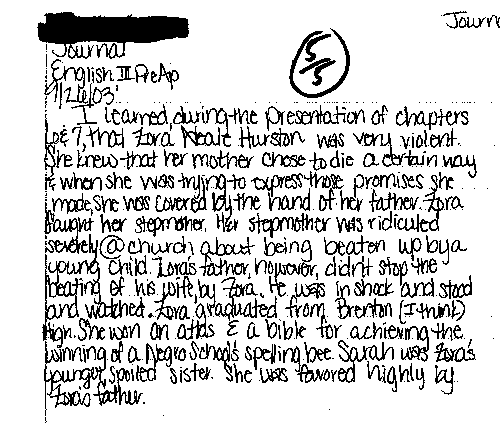 Journal
Journal
English II PreAp
9/26/03
5/5
I learned, during the presentation of chapters
6 & 7, that Zora Neale Hurston was very violent.
She knew that her mother chose to die a certain way
& when she was trying to express those promises she
made, she was covered by the hand of her father. Zora
faught her stepmother. Her stepmother was ridiculed
severely @ church about being beaten up by a
young child. Zora's father, however, didn't stop the
beating of his wife, by Zora. He was in shock and stood
and watched. Zora graduated from Brenton (I think)
High. She won an atlas & a bible for achieving the
winning of a Negro School's spelling bee. Sarah was Zora's
younger, spoiled sister. She was favored highly by
Zora's father.